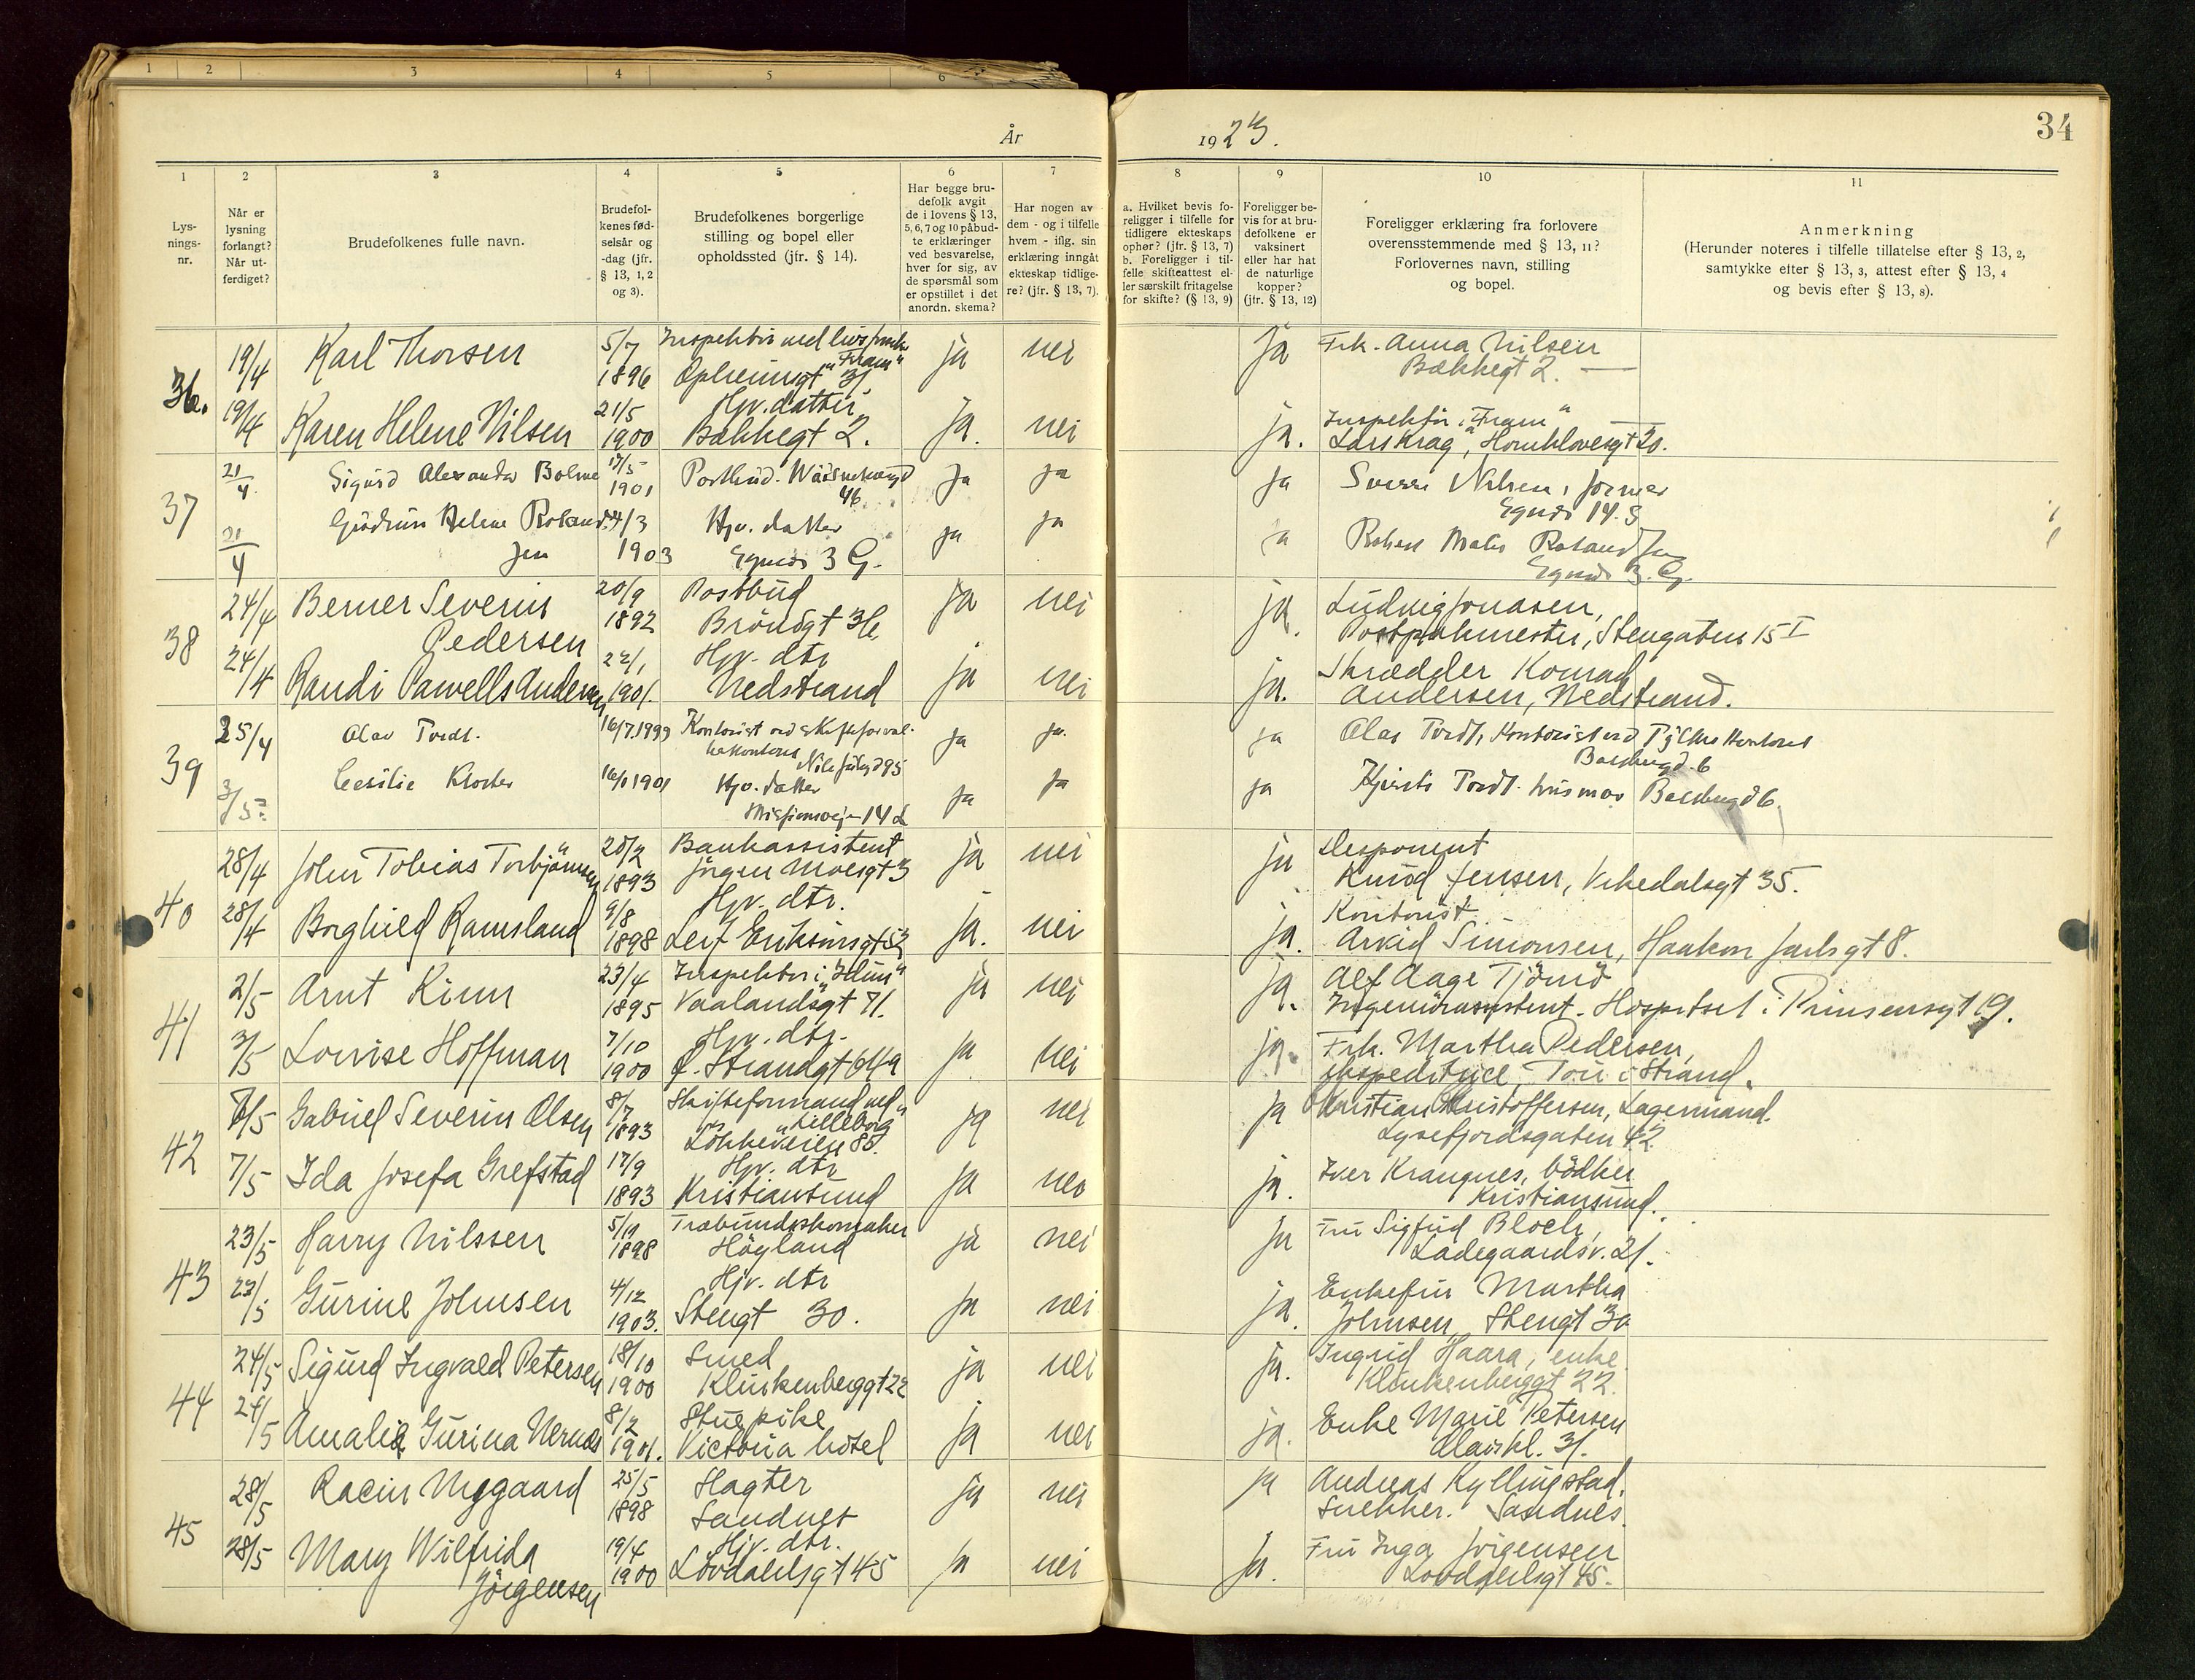 1 2 3 4 5 6
År 1923.
34
1
Lys-
nings-
nr.
2
Når er
lysning
forlangt?
Når ut-
ferdiget?
3
Brudefolkenes fulle navn.
4
Brudefol-
kenes fød-
selsår og
-dag (jfr.
§ 13, 1, 2
og 3).
5
Brudefolkenes borgerlige
stilling og bopel eller
opholdssted (jfr. § 14).
6
Har begge bru-
defolk avgit
de i lovens § 13,
5, 6, 7 og 10 påbud-
te erklæringer
ved besvarelse,
hver for sig, av
de spørsmål som
er opstillet i det
anordn. skema?
7
Har nogen av
dem - og i tilfelle
hvem - iflg. sin
erklæring inngåt
ekteskap tidlige-
re? (jfr. § 13, 7).
8
a. Hvilket bevis fo-
religger i tilfelle for
tidligere ekteskaps
ophør? (jfr. § 13, 7)
b. Foreligger i til-
felle skifteattest el-
ler særskilt fritagelse
for skifte? (§ 13, 9)
9
Foreligger be-
vis for at bru-
defolkene er
vaksinert
eller har hat
de naturlige
kopper?
(jfr. § 13, 12)
10
Foreligger erklæring fra forlovere
overensstemmende med § 13, 11?
Forlovernes navn, stilling
og bopel.
11
Anmerkning
(Herunder noteres i tilfelle tillatelse efter § 13, 2,
samtykke efter § 13, 3, attest efter § 13, 4
og bevis efter § 13, 8).
36.
19/4 Karl Thorsen 5/7 1896 Inspektør ved
"Fram" 31 ja nei ja Frk. Anna Nilsen
Bækkegt 2.
19/4 Karen Helene Nilsen 21/5 1900 Hjv. datter
Bækkegt 2. ja. nei ja. Inspektør i "Fram"
Lars Krag, 20.
37
21/4 Sigurd Alexander Bolme 17/5 1901 Postbud.
46 ja ja ja Sverre Nilsen, former
14. S
21/4 Gudrun Helene Roland- 4/3 1903 Hjv. datter
sen 3 G. ja ja ja Roland sen
3. G.
38
24/4 Berner Severin
Pedersen 20/9 1892 Postbud
Bröndgt 36 ja nei ja. Ludvig Jonasen,
Postpakmester, Stengaten 15 I
24/4 Randi Pawells Andersen 22/1 1901. Hjv. dtr
Nedstrand ja nei ja. Skrædder Konrad
Andersen, Nedstrand.
39
25/4 Olav Tvedt. 16/7.1899 Kontorist ved
95 ja ja. ja Olav Tvedt, Kontorist ved
6
3/5 Cecilie 16/1 1901 Hjv. datter
Misjonsvei 14 ja ja ja Tvedt. husmor 6.
40
28/4 John Tobias Torbjörnsen 20/2 1893 Bankassistent
Jörgen Moesgt 3 ja nei ja Disponent
Knud Jensen, Vikedalsgt 35.
28/4 Borghild Ramsland 9/8 1898 Hjv. dtr.
Leif Eriksönsgt 52 ja. nei ja. Kontorist
Arvid Simonsen, Haakon Jarlsgt 8.
41
2/5 Arnt Kinn 23/4 1895 Inspektør i
Vaalandsgt 71. ja nei ja. Alf Aage
Ingeniörassistent. Hospitset i Prinsensgt 19.
3/5 Lovise Hoffman 7/10 1900 Hjv. dtr.
Ø. Strandgt 64a ja nei ja. Frk. Martha Pedersen,
ekspeditrice, Tou i Strand.
42
7/5 Gabriel Severin Olsen 8/7 1893 Skifteformand ved
"Lilleborg"
Lökkeveien 85. ja nei ja Kristian Kristoffersen, Lagermand.
Lysefjordsgaten 42
7/5 Ida Josefa Grefstad 17/9 1893 Hjv. dtr
Kristiansund ja nei ja. Iver Krangnes, bödker
Kristiansund.
43
23/5 Harry Nilssen 1898 Træbundskomaker
Höyland ja nei ja Fru Sigfrid Bloch,
Ladegaardsv. 21.
23/5 Gurine Johnsen 4/12 1903. Hjv. dtr
Stengt 30. ja nei ja. Enkefru Martha
Johnsen, Stengt 30
44
24/5 Sigurd Ingvald Petersen 18/10 1900 Smed
Klinkenberggt 22 ja nei ja. Ingrid Haara, enke
Klinkenberggt 22.
24/5 Amalie Gurina Nernæs 8/2 1901. Stuepike
Victoria hotel ja nei ja. Enke Marie Petersen
31.
45
28/5 Nygaard 25/5 1898 Slagter
Sandnes ja nei ja Andreas Kyllingstad,
Snekker. Sandnes.
28/5 Mary Wilfrida
Jörgensen 19/4 1900 Hjv. dtr.
Lovdahlsgt 45 ja nei ja. Fru Inga Jörgensen
Lovdahlsgt 45.